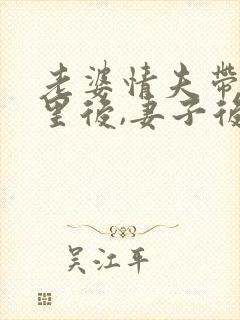 老婆情夫帶
里後,妻子後
吴江平